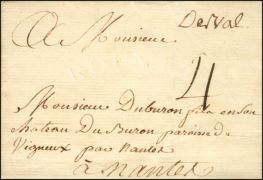 DerVal
A Monsieur
4
Monsieur Duburon en son
chateau Du Buron paroisse de
Vigneux par Nantes
à Nantes